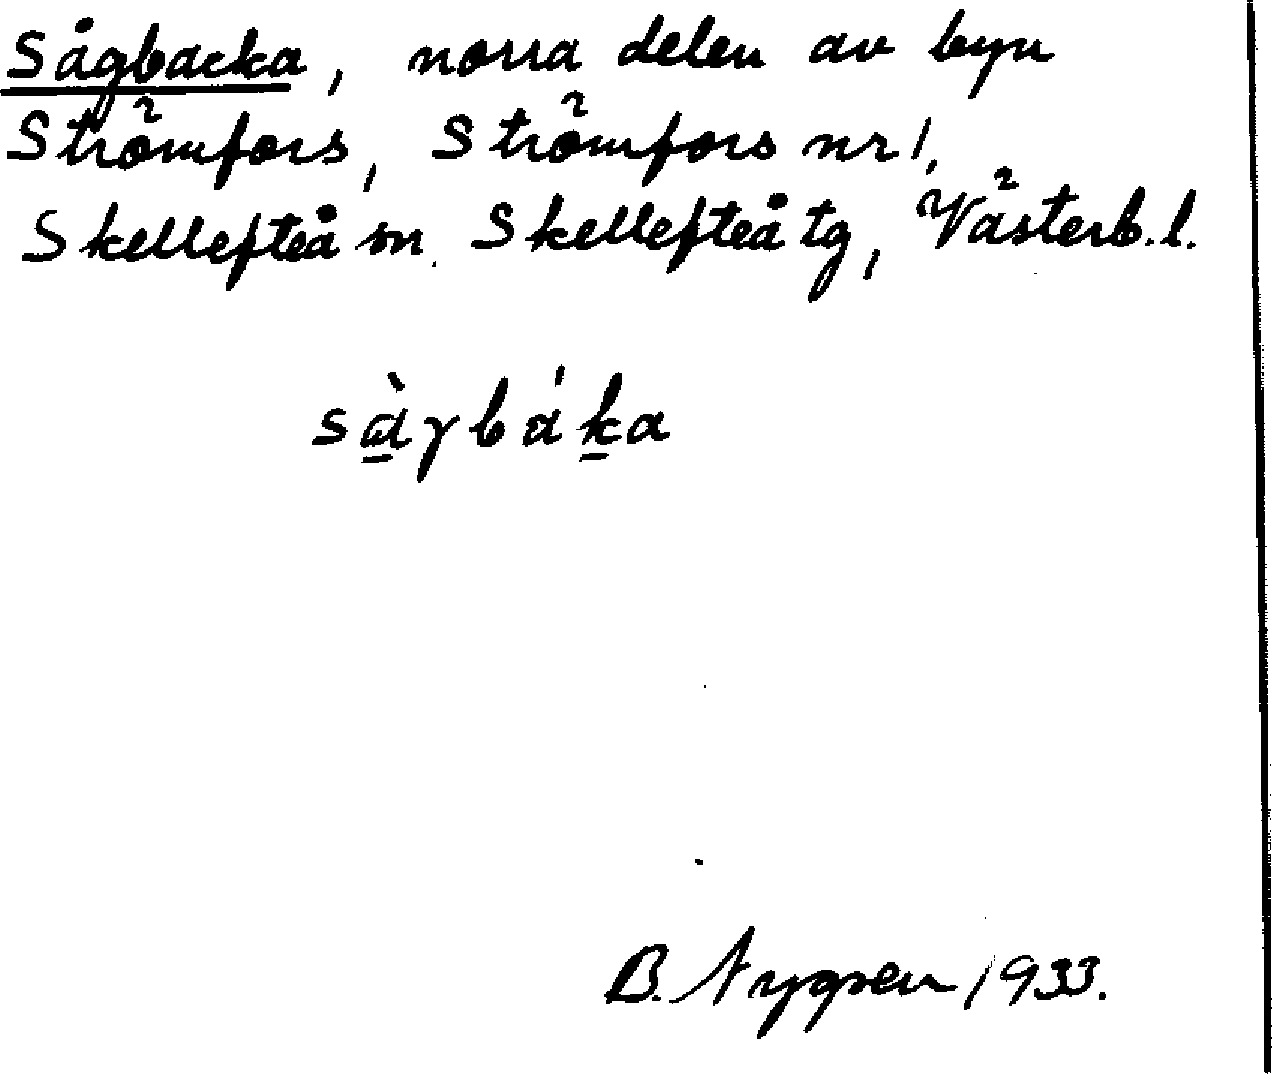 Sågbacka, norra delen av byn
Strömfors, Strömfors nr 1,
Skellefteå sn. Skellefteå tg, Västerb. l.
sàγbáka
B. Nygren 1933.